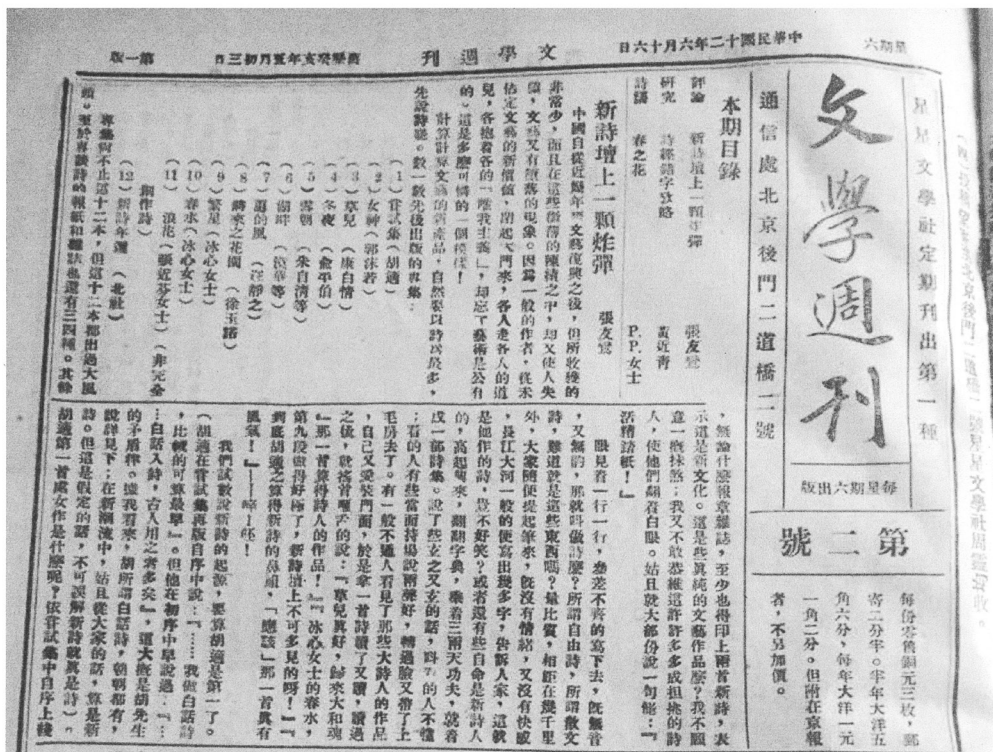 星期六
中華民國十二年六月十六日
文學週刊
舊曆癸亥年五月初三日
第一版
星星文學社定期刊出第一種
文學週刊
每星期六出版
通信處北京後門二道橋二號
第二號
每份零售銅元三枚，郵
寄二分半。半年大洋五
角六分，每年大洋一元
一角二分。但附在京報
者，不另加價。
本期目錄
評論　新詩壇上一顆炸彈　張友鸞
研究　詩經錯字攷略　黃近青
詩選　春之花　P.P.女士
新詩壇上一顆炸彈　張友鸞
中國自從近幾年鬧文藝復興之後，但所收穫的
非常少，而且在這些微薄的陳績之中，却又使人失
望，文藝又有墮落的現象。因為一般的作者，從未
估定文藝的新價值，閉起大門來，各人走各人的道
兒，各抱着各的「唯我主義」，却忘了藝術是公有
的。這是多麼可憐的一個模樣！
計算計算文藝的新產品，自然要以詩為最多，
先說詩罷。數一數先後出版的專集：
（1）嘗試集（胡適）
（2）女神（郭沫若）
（3）草兒（康白情）
（4）冬夜（俞平伯）
（5）雪朝（朱自清等）
（6）湖畔（漠華等）
（7）蕙的風（汪靜之）
（8）將來之花園（徐玉諾）
（9）繁星（冰心女士）
（10）春水（冰心女士）
（11）浪花（張近芬女士）（非完全
創作詩）
（12）新詩年選（北社）
專集與不止這十二本，但這十二本都出過大風
頭。至於專談詩的報紙和雜誌也還有三四種。其餘
，無論什麼報章雜誌，至少也得印上兩首新詩，表
示這是新文化。這是些真純的文藝作品麼？我不願
意一概抹煞；我又不敢恭維這許許多多或担挑的詩
人，使他們翻着白眼。姑且就大部份說一句罷：『
活糟蹋紙！』
眼見着一行一行，參差不齊的寫下去，既無音
，又無韵，那就叫做詩麼？所謂自由詩，所謂散文
詩，難道就是這些東西嗎？量比質，相距在幾千里
外，大家隨便提起筆來，既沒有情緒，又沒有快感
，長江大河一般的便寫出幾多字，告訴人家，這就
是他作的詩，豈不好笑？或者還有些自命是新詩人
的，高起興來，翻翻字典，乘着三兩天功夫，就着
成一部詩集。說了些玄之又玄的話，與看的人不懂
；看的人有些當面持場說兩聲好，轉過臉又帶了上
毛房去了。有一般不通人看見了那些大詩人的作品
，自己又愛裝門面，於是拿一首詩讀了又讀，讀過
之後，就搖首嘔舌的說：『草兒真好，歸來大和魂
』那一首算得詩人的作品！』『冰心女士的春水，
第九段做得好極了，新詩壇上不可多見的呀！』『
到底胡適之算得新詩的鼻頭，「應該」那一首真有
風氣！』——呸！呸！
我們試數說新詩的起源，要算胡適是第一了。
（胡適在嘗試集再版自序中說：『……我做白話詩
，比較的可算最早』。但他在初序中早說過：『…
…白話入詩，古人用之者多矣』，這大概是胡先生
的矛盾律。據我看來，胡所謂白話詩，朝朝都有，
說詳見下；在新潮流中，姑且從大家的話，算是新
詩。但這是假定的話，不可誤解新詩就真是詩）。
胡適第一首處女作是什麼呢？依嘗試集中自序上錢